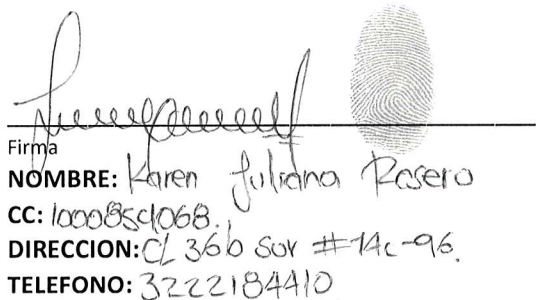 Firma
NOMBRE: Karen Juliana Rosero
CC: 1000859068.
DIRECCION: CL 36b sur #14c-96.
TELEFONO: 3222184410